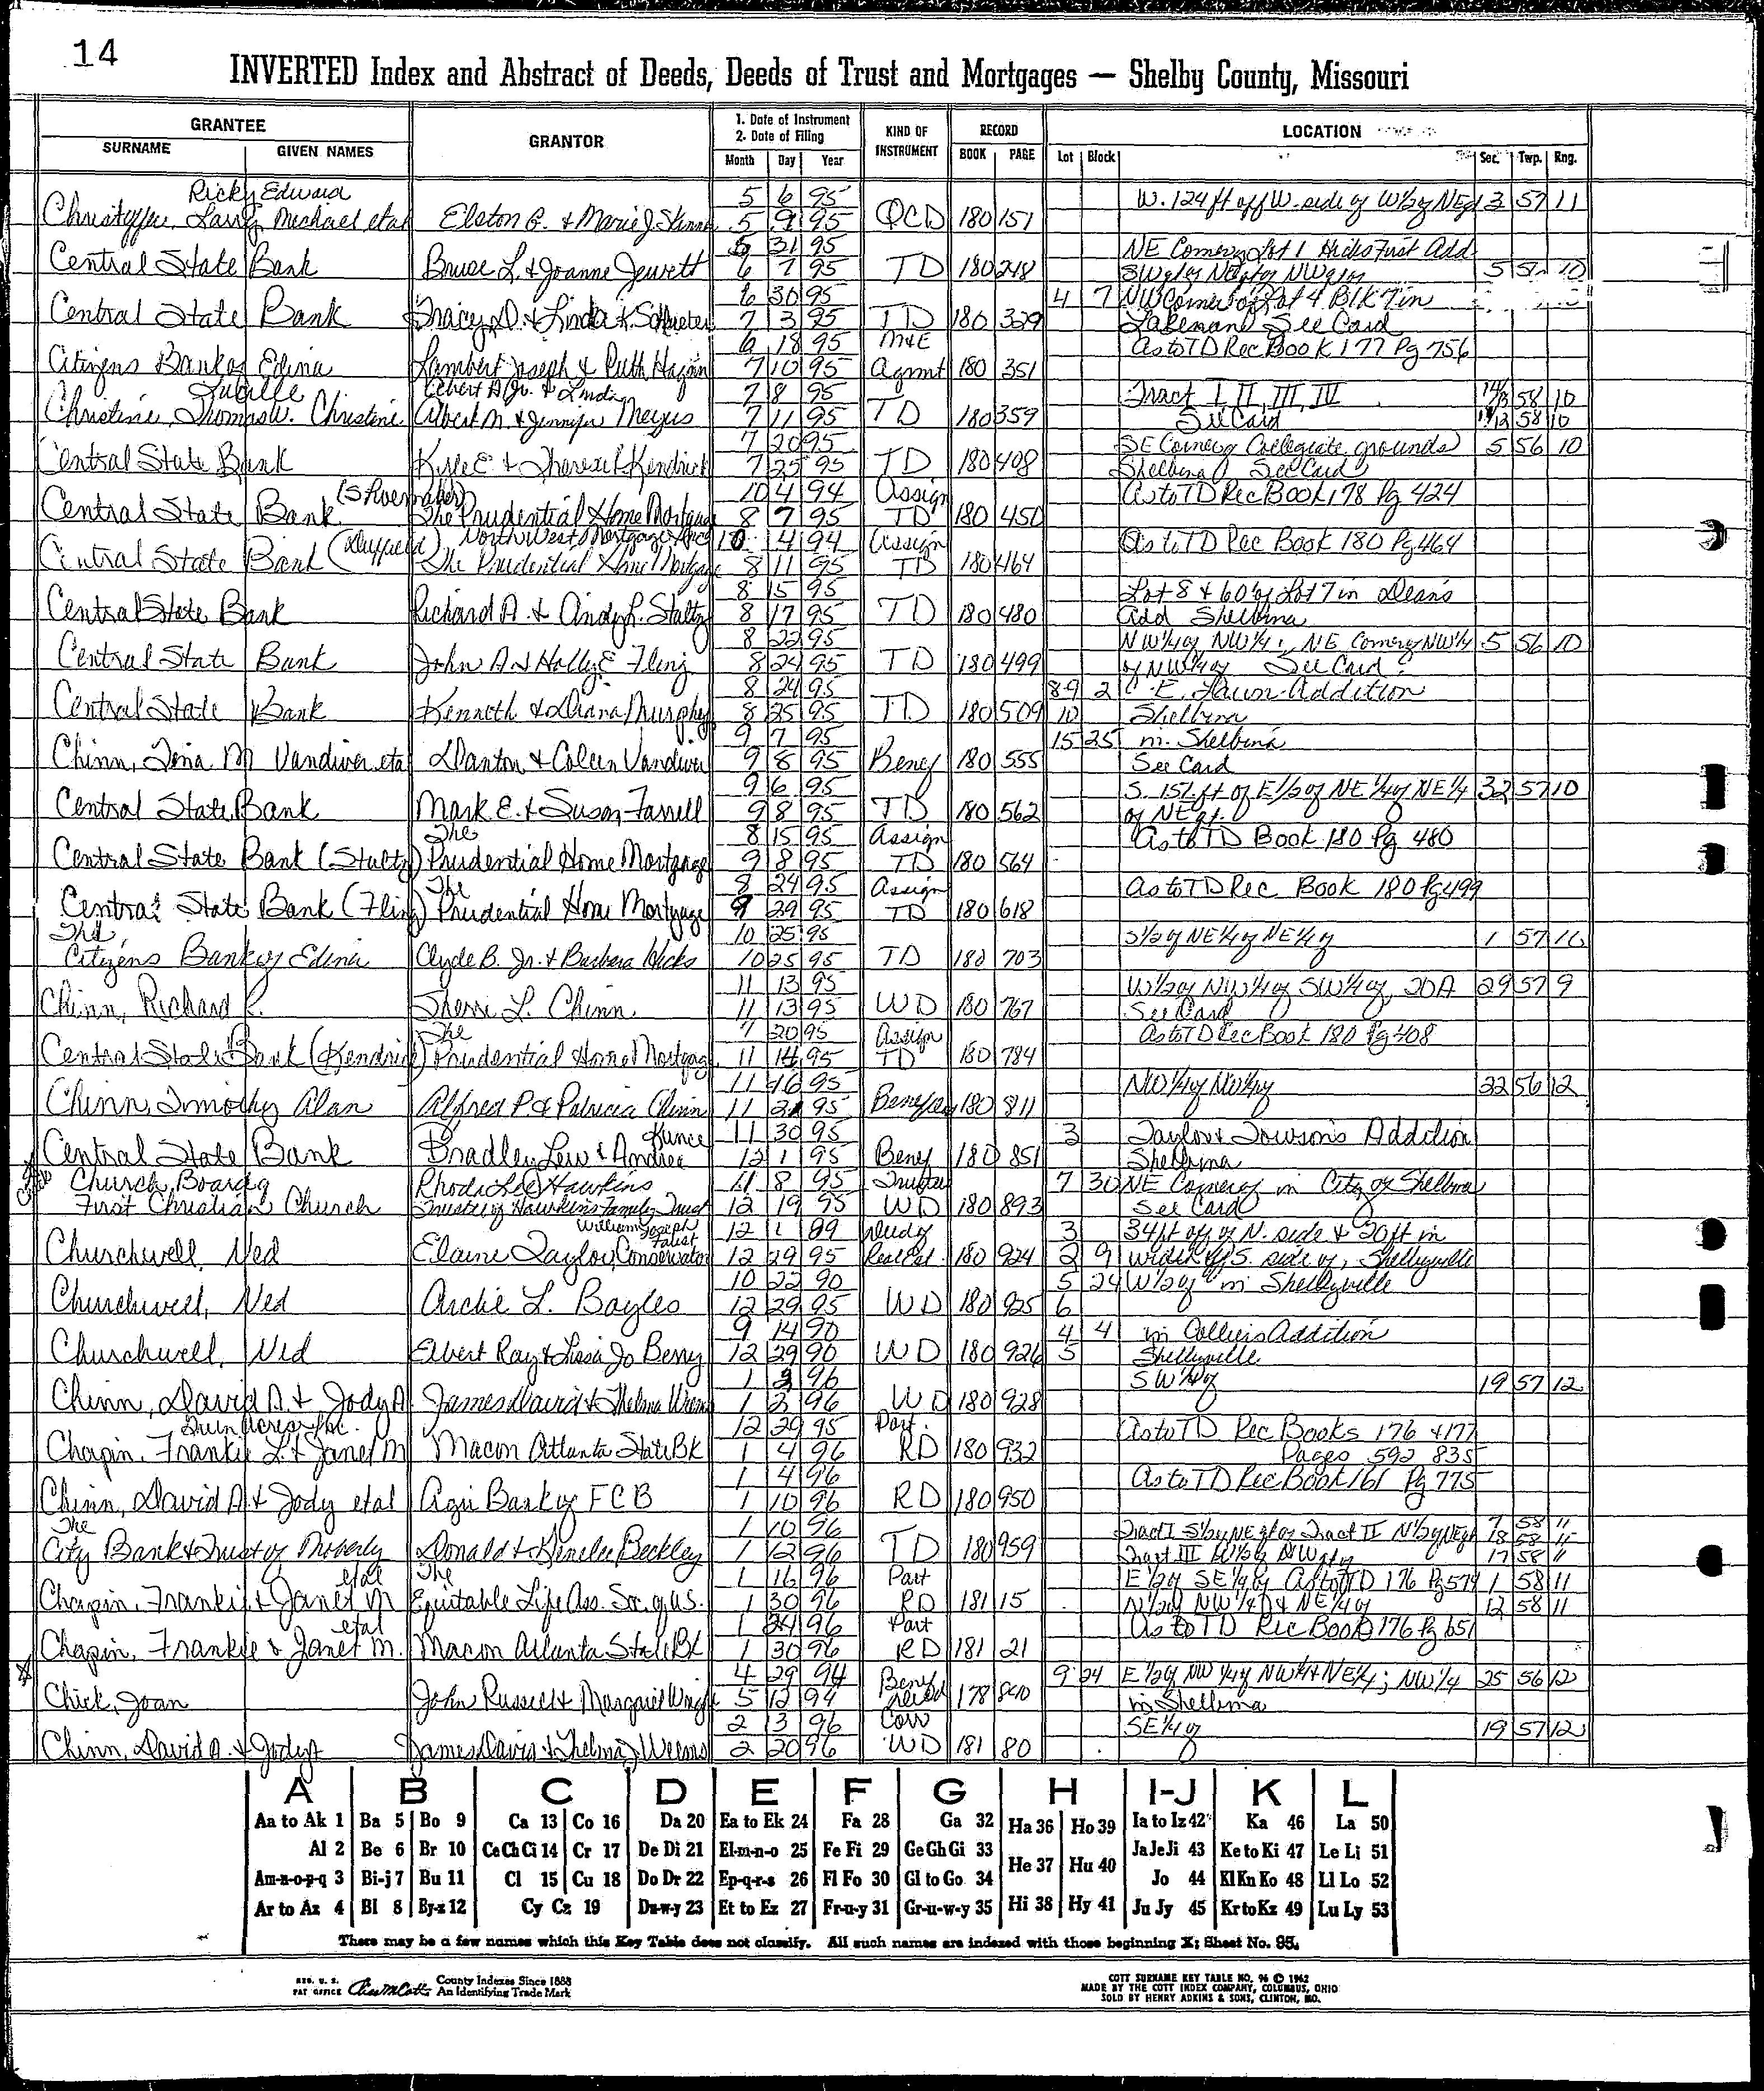 14
INVERTED Index and Abstract of Deeds, Deeds of Trust and Mortgages — Shelby County, Missouri
GRANTEE
SURNAME GIVEN NAMES
GRANTOR
1. Date of Instrument
2. Date of Filing
Month Day Year
KIND OF
INSTRUMENT
RECORD
BOOK PAGE
LOCATION
Lot Block Sec. Twp. Rng.
Ricky Edward 5 6 95 W. 124 ft off W. side of W1/2 of NE 3 57 11
Larry Michael etal Elston G. & Marie J. 5 9 95 QCD 180 151
5 31 95 NE Corner of Lot 1 Hicks First Add
Central State Bank Bruce L. & Joanne Jewett 6 7 95 TD 180 248 SW of NE of NW 5 10
6 30 95 4 7 NW Corner of Lot 4 Blk 7 in
Central State Bank Tracy D. & Linda K. 7 3 95 TD 180 329 Lakenan See Card
6 18 95 M&E As to TD Rec Book 177 Pg 756
Citizens Bank of Edina Lambert Joseph & Ruth 7 10 95 Agmt 180 351
Lucille Elbert A Jr. & 7 8 95 Tract I, II, III, IV 58 10
Christine, Thomas W. Christine Albert M. & Jennifer 7 11 95 TD 180 359 See Card 58 10
7 20 95 SE Corner of Collegiate grounds 5 56 10
Central State Bank Kyle E. & Kendrick 7 25 95 TD 180 408 Shelbina See Card
(Shoemaker) 10 4 94 Assign As to TD Rec Book 178 Pg 424
Central State Bank The Prudential Home Mortgage 8 7 95 TD 180 450
NorthWest Mortgage Inc 10 14 94 Assign As to TD Rec Book 180 Pg 464
Central State Bank (Duffield) The Prudential Home Mortgage 8 11 95 TD 180 464
8 15 95 Lot 8 & 60' of Lot 7 in Dean's
Central State Bank Richard A. & Cindy L. Stultz 8 17 95 TD 180 480 Add Shelbina
8 22 95 NW1/4 of NW1/4; NE Corner of NW1/4 5 56 10
Central State Bank John A & Holly E Fling 8 24 95 TD 180 499 of NW1/4 of See Card
8 24 95 8 9 2 E. Lawn Addition
Central State Bank Kenneth & Diana Murphy 8 25 95 TD 180 509 10 Shelbina
9 7 95 15 25 in Shelbina
Chinn, Tina M Vandiver etal Danton & Coleen Vandiver 9 8 95 Benef 180 555 See Card
9 6 95 S. 157 ft of E1/2 of NE1/4 of NE1/4 32 57 10
Central State Bank Mark E. & Susan Farrell 9 8 95 TD 180 562 of NE
The 8 15 95 Assign As to TD Book 180 Pg 480
Central State Bank (Stultz) Prudential Home Mortgage 9 8 95 TD 180 564
The 8 24 95 Assign As to TD Rec Book 180 Pg 499
Central State Bank (Fling) Prudential Home Mortgage 9 29 95 TD 180 618
The 10 25 95 S1/2 of NE1/4 of NE1/4 of 1 57
Citizens Bank of Edina Clyde B. Jr. & Barbara Hicks 10 25 95 TD 180 703
11 13 95 W1/2 of NW1/4 of SW1/4 of, 20A 29 57 9
Chinn, Richard Sherri L. Chinn 11 13 95 WD 180 767 See Card
The 7 20 95 Assign As to TD Rec Book 180 Pg 408
Central State Bank (Kendrick) Prudential Home Mortgage 11 14 95 TD 180 784
11 16 95 NW1/4 of NW1/4 of 22 56 12
Chinn, Timothy Alan Alfred P & Patricia Chinn 11 21 95 180 811
Kunce 11 30 95 3 Taylor & Towson's Addition
Central State Bank Bradley Lew & Andrea 12 1 95 Benef 180 851 Shelbina
Church, Board of Rhoda Lee Hawkins 11 8 95 Trustee 7 30 NE Corner of in City of Shelbina
First Christian Church Trustee of Hawkins Family Trust 12 19 95 WD 180 893 See Card
William Joseph Faust 12 1 89 Deed of 3 34 ft off of N. side & 20 ft in
Churchwell, Ned Elaine Taylor, Conservator 12 29 95 Real Est. 180 924 2 9 width off S. side of, Shelbyville
10 22 90 5 24 W1/2 of in Shelbyville
Churchwell, Ned Archie L. Bayles 12 29 95 WD 180 925 6
9 14 90 4 4 in Colliers Addition
Churchwell, Ned Elbert Ray & Lissa Jo Berry 12 29 90 WD 180 926 5 Shelbyville
1 2 96 SW1/4 of 19 57 12
Chinn, David A. & Jody A James David & Thelma Weems 1 2 96 WD 180 928
Twin Acres Inc. 12 29 95 Part. As to TD Rec Books 176 & 177
Chapin, Frankie L. & Janet M Macon Atlanta State Bk 1 4 96 RD 180 932 Pages 592 835
1 4 96 As to TD Rec Book 161 Pg 775
Chinn, David A & Jody etal Agri Bank of FCB 1 10 96 RD 180 950
The 1 10 96 Tract I S1/2 of NE of Tract II N1/2 of NE 7 58 11 18 58 11
City Bank & Trust of Moberly Donald & Kenelee Beckley 1 12 96 TD 180 959 Tract III W1/2 of NW 17 58 11
etal The 1 16 96 Part E1/2 of SE1/4 of As to TD 176 Pg 579 1 58 11
Chapin, Frankie & Janet M Equitable Life Ass. Soc. of U.S. 1 30 96 RD 181 15 N1/2 of NW1/4 & NE1/4 of 12 58 11
etal 1 24 96 Part As to TD Rec Book 176 Pg 651
Chapin, Frankie & Janet M. Macon Atlanta State Bk 1 30 96 RD 181 21
4 29 94 Benef 9 24 E1/2 of NW1/4 of NW1/4 & NE1/4; NW1/4 25 56 12
Chick, Joan John Russell & Margaret Wright 5 12 94 Deed 178 840 in Shelbina
2 13 96 Corr SE1/4 of 19 57 12
Chinn, David A. & Jody A James David & Thelma J Weems 2 20 96 WD 181 80
A B C D E F G H I-J K L
Aa to Ak 1 Ba 5 Bo 9 Ca 13 Co 16 Da 20 Ea to Ek 24 Fa 28 Ga 32 Ha 36 Ho 39 Ia to Iz 42 Ka 46 La 50
Al 2 Be 6 Br 10 Ce Ch Ci 14 Cr 17 De Di 21 El-m-n-o 25 Fe Fi 29 Ge Gh Gi 33 He 37 Hu 40 Ja Je Ji 43 Ke to Ki 47 Le Li 51
Am-n-o-p-q 3 Bi-j 7 Bu 11 Cl 15 Cu 18 Do Dr 22 Ep-q-r-s 26 Fl Fo 30 Gl to Go 34 Jo 44 Kl Kn Ko 48 Ll Lo 52
Ar to Az 4 Bl 8 By-z 12 Cy Cz 19 Du-w-y 23 Et to Ez 27 Fr-u-y 31 Gr-u-w-y 35 Hi 38 Hy 41 Ju Jy 45 Kr to Kz 49 Lu Ly 53
There may be a few names which this Key Table does not classify. All such names are indexed with those beginning X; Sheet No. 95.
REG. U. S.
PAT OFFICE
County Indexes Since 1888
An Identifying Trade Mark
COTT SURNAME KEY TABLE NO. 96 © 1962
MADE BY THE COTT INDEX COMPANY, COLUMBUS, OHIO
SOLD BY HENRY ADKINS & SONS, CLINTON, MO.